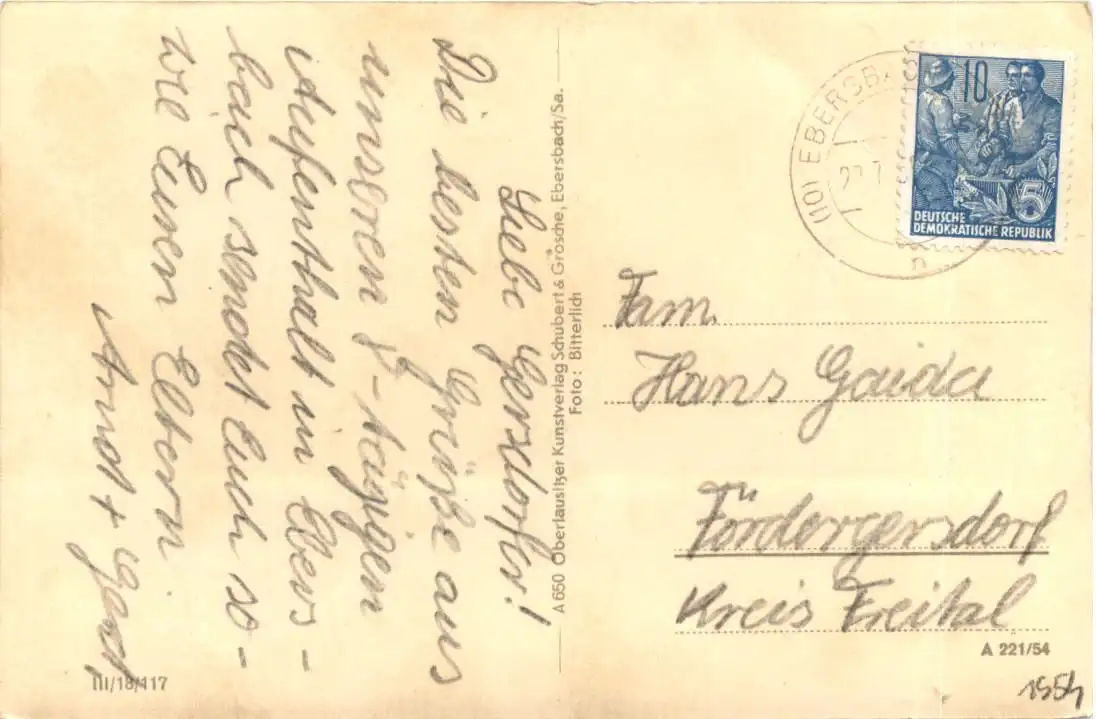 Liebe Gersdorfer!
Die besten Grüße aus
unseren 8-tägigen
Aufenthalt in Ebers-
bach sendet Euch so-
wie Euern Eltern
Arndt + Gerd,
III/18/117
A 650 Oberlausitzer Kunstverlag Schubert & Grosche, Ebersbach/Sa.
Foto: Bitterlich
(10) EBERSBA
22.7
n
10
5
DEUTSCHE
DEMOKRATISCHE REPUBLIK
Fam.
Hans Gaida
Fördergersdorf
Kreis Freital
A 221/54
1954